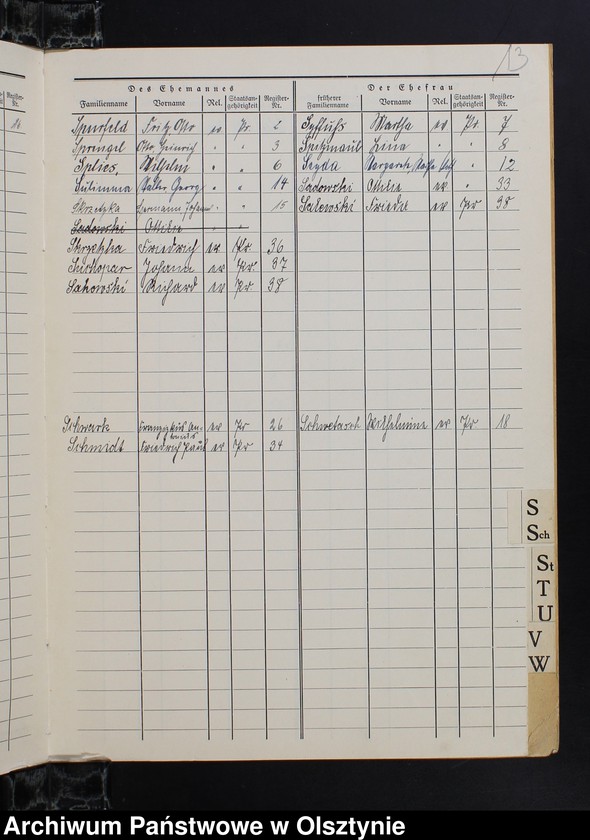 13
Des Ehemannes Der Ehefrau
Familienname Vorname Rel. Staatsan-gehörigkeit Register-Nr. früherer Familienname Vorname Rel. Staatsan-gehörigkeit Register-Nr.
Spurfeld Fritz, Otto ev Pr. 2 Martha ev Pr. 7
Sprengel Otto, Heinrich " " 3 Spitzmaul Lina " " 8
Splies, Wilhelm " " 6 Seyda Margarete, Martha 12
Sulimma Walter Georg " " 14 Sadowski Ottilie ev " 33
Skrzetzka Hermann Johann " " 15 Salewski Frieda ev Pr 38
Sadowski Ottilie " "
Skrzetzka Friedrich ev Pr 36
Johann ev Pr. 37
Sakowski Richard ev Pr 38
Schwark Franziskus An-tonius ev Pr 26 Wilhelmine ev Pr 18
Schmidt Friedrich Paul ev Pr 34
S
Sch
St
T
U
V
W
Archiwum Państwowe w Olsztynie